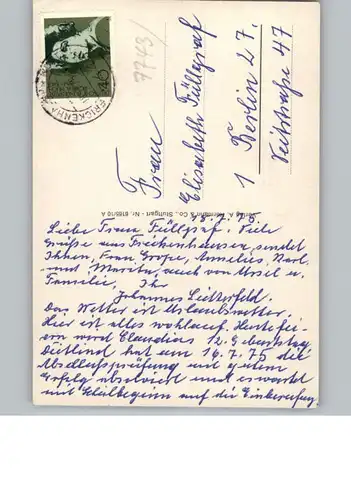 7743/
40
FRICKENHA
Frau
Elisabeth Füllgraf
1 Berlin 27.
Veitstraße 47
Verlag A. & Co., Stuttgart - Nr. 6165/10 A
18.7.75.
Liebe Frau Füllgraf. Viele
Grüße aus Frickenhausen, sendet
Ihnen, Frau Große, Annelies, Karl
und Marita, auch von Ursel u.
Familie, Ihr
Johannes
Das Wetter ist Urlaubswetter.
Hier ist alles wohlauf. Heute fei-
ern wird Claudias 12. Geburtstag
Dietlind hat am 16.7.75 die
Abschlußprüfung mit gutem
Erfolg absolviert und erwartet
mit Schulbeginn auf die Einberufung.